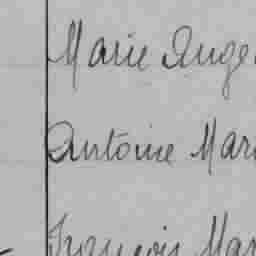 Marie Ange
Antoine Mari
François Mar